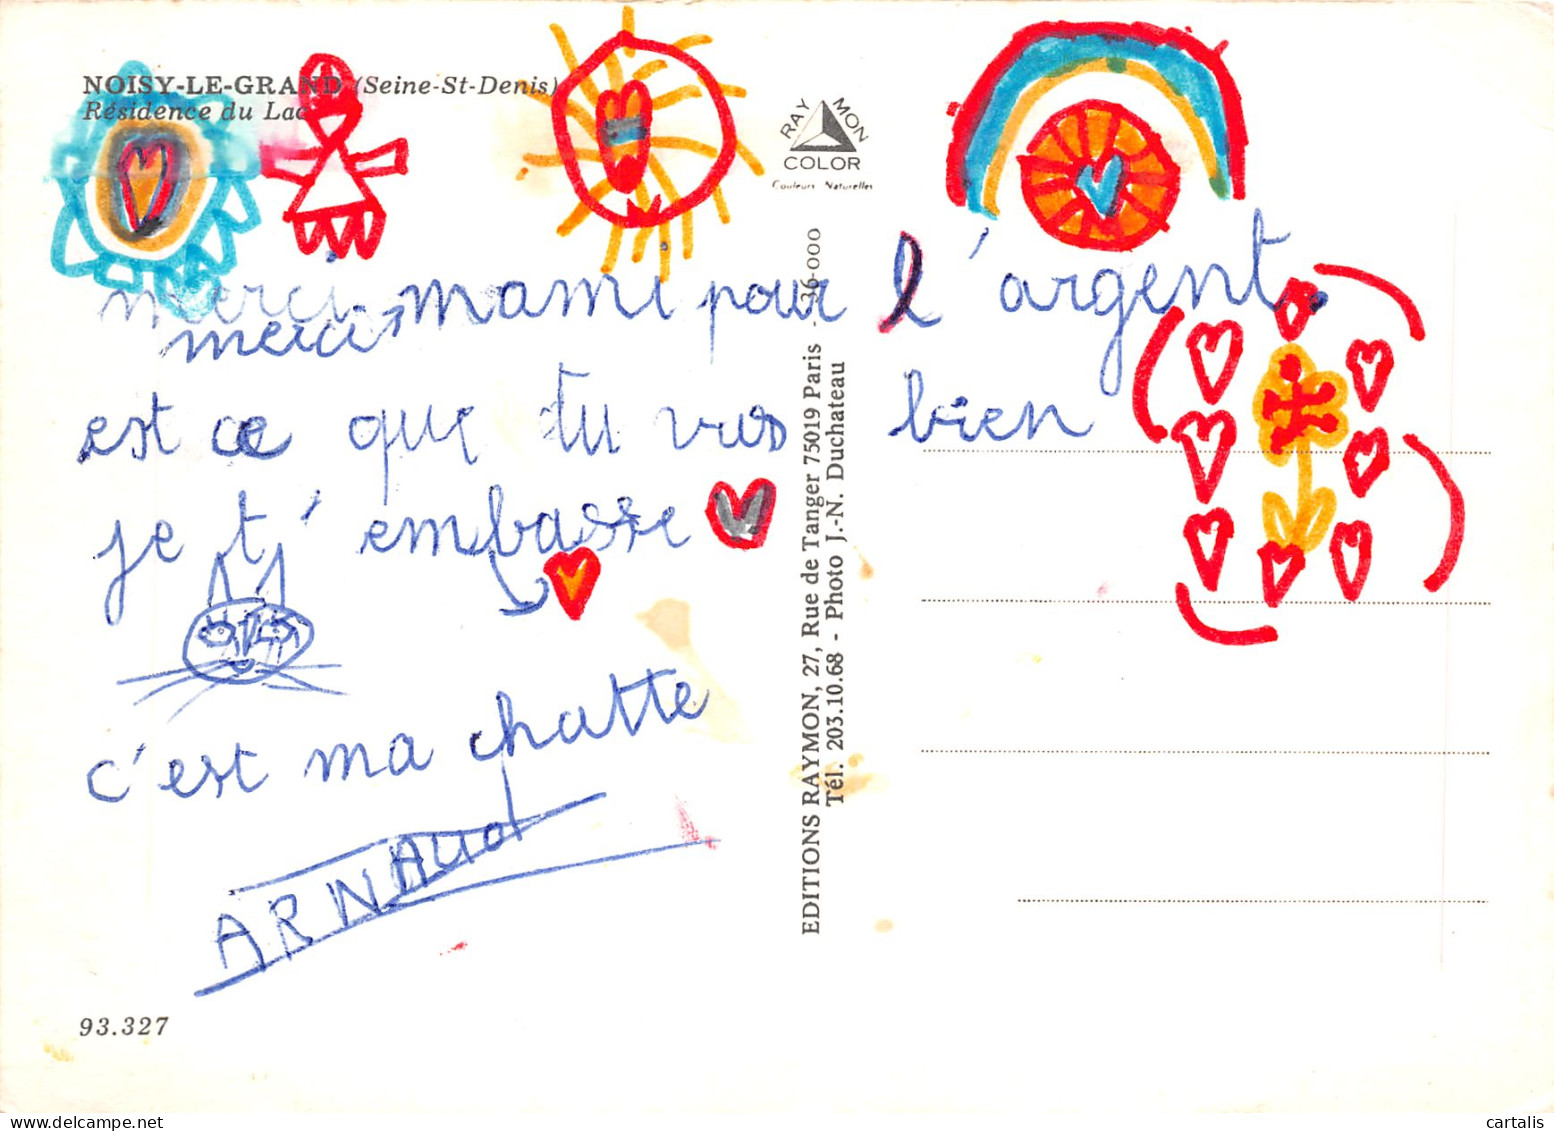 NOISY-LE-GRAND (Seine-St-Denis)
Résidence du Lac
RAYMON
COLOR
Couleurs Naturelles
merci mami pour l'argent.
merci,
est ce que tu vas bien
je t'embasse
c'est ma chatte
ARNAud
93.327
EDITIONS RAYMON, 27, Rue de Tanger 75019 Paris - 36-000
Tél. 203.10.68 - Photo J.-N. Duchateau
cartalis